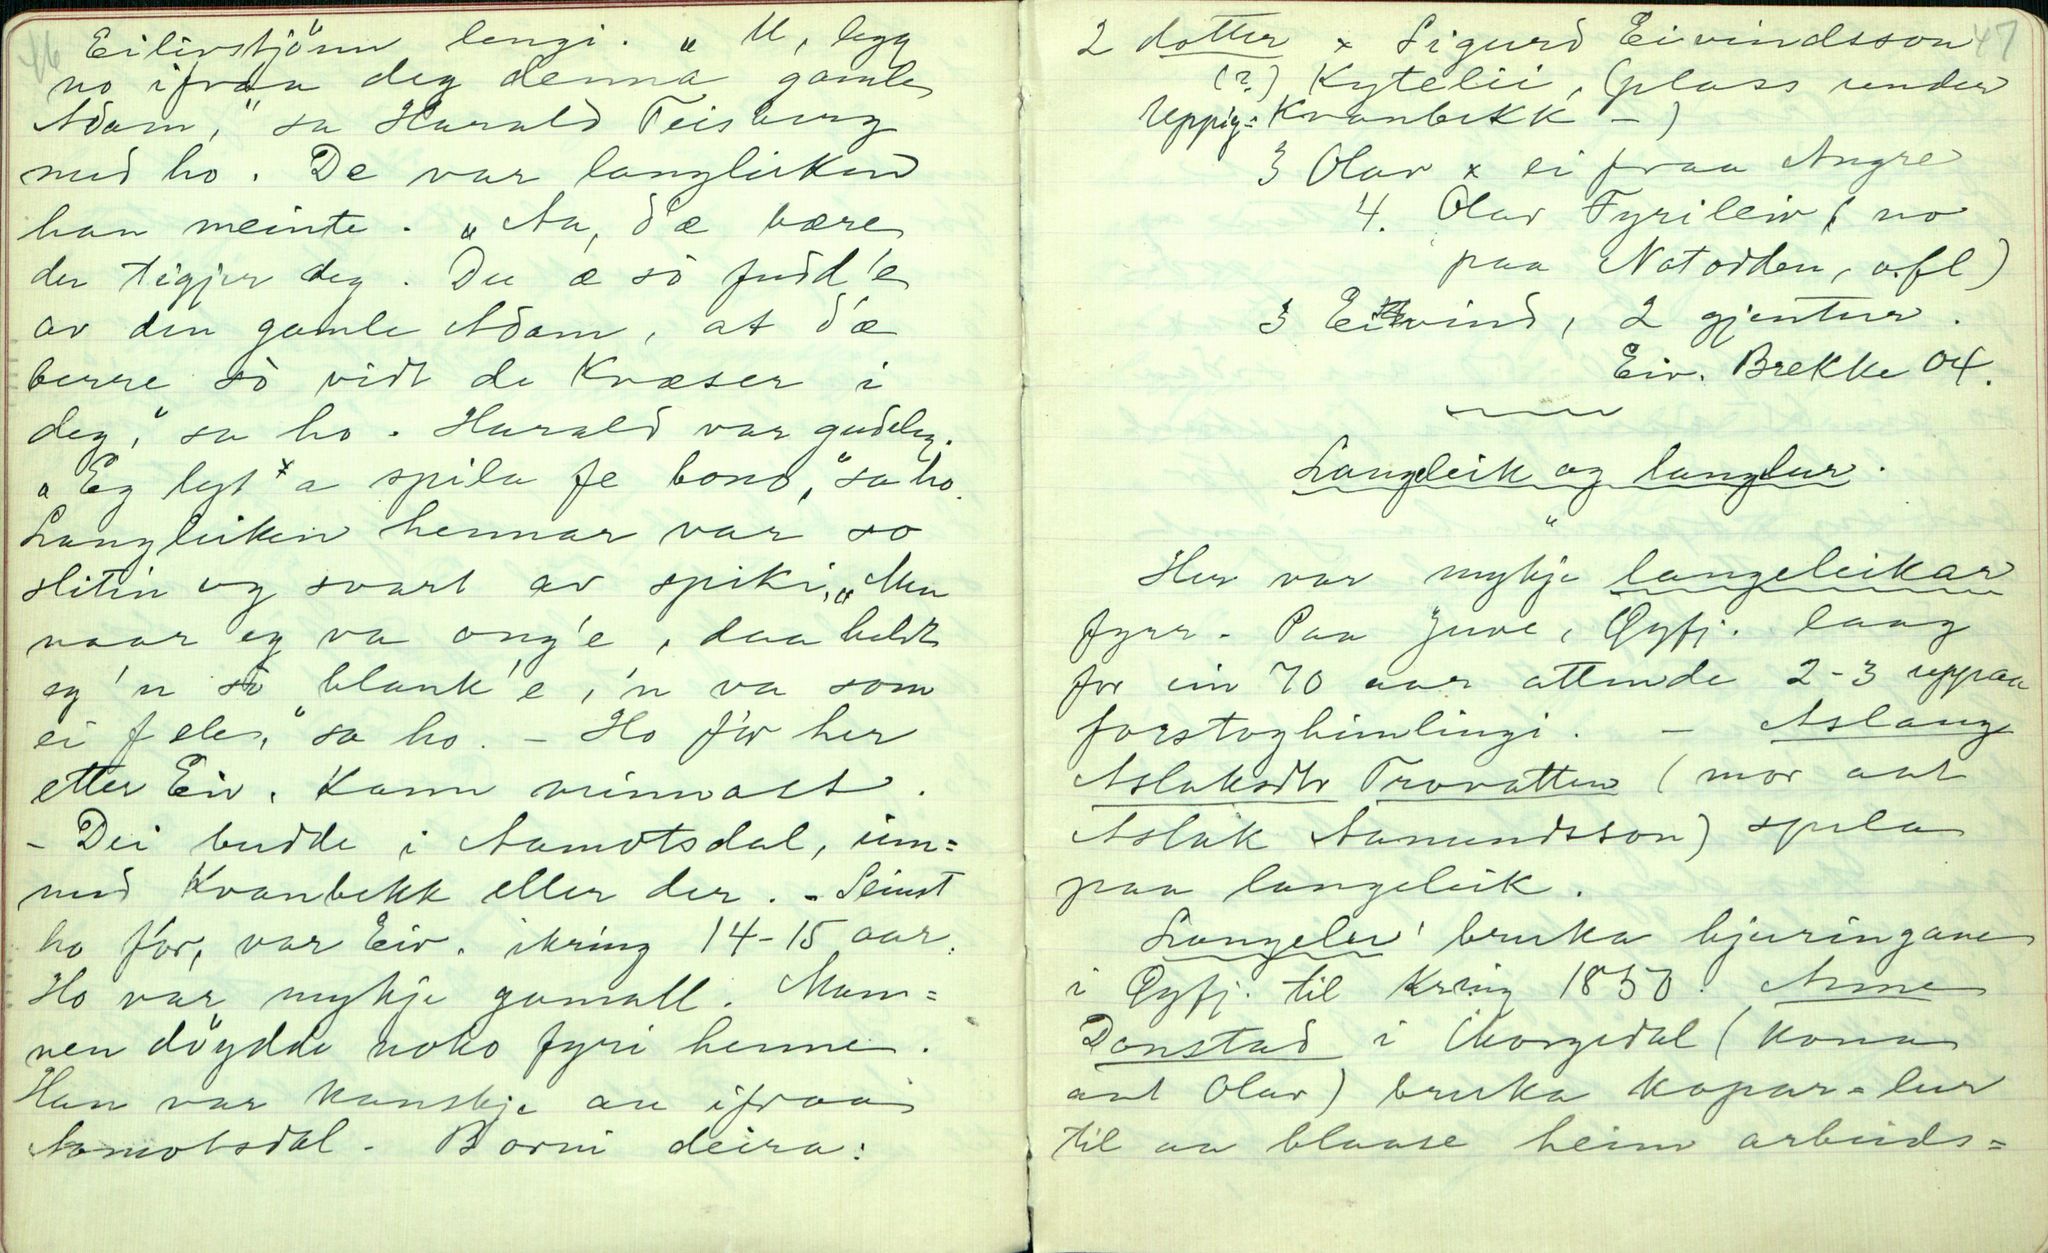 46
Eilivstjönn lengi. „ U, legg
no ifraa deg denna gamle
Adam," sa Harald Teisberg
med ho. De var langleiken
han meinte. „Aa, d'æ bære
der tigjer deg. Du æ sò fudd'e
av den gamle Adam, at d'æ
berre sò vidt de kvæser i
deg," sa ho. Harald var gudeleg.
„Eg lyt x a spila fe bono," sa ho.
Langleiken hennar var so
slitin og svart av spiki, „Men
naar eg va ong'e, daa heldt
eg 'n sò blank'e, 'n va som
ei fele," sa ho. – Ho fór her
etter Eiv. kann minnast.
– Dei budde i Aamotsdal, um=
med Kvanbekk eller der. – Seinst
ho fór, var Eiv. ikring 14-15 aar.
Ho var mykje gamall. Man=
nen döydde noko fyri henne.
Han var kanskje au ifraa
Aamotsdal. Borni deira:
47
2 dotter x Sigurd Eivindsson
(?) Kytelii, (plass under
Uppig= Kvanbekk –)
3 Olav x ei fraa Angre
4. Olav Fyrileiv (no
paa Notodden, ofl)
3 Eivind, 2 gjentur.
Eiv. Brekke 04.
Langleik og langlur.
"
Her var mykje langeleikar
fyrr. Paa Juve, Øyfj. laag
for ein 70 aar attende 2-3 uppaa
forstoghimlingi. – Aslaug
Aslaksdtr Trovatten (mor aat
Aslak Aamundsson) spela
paa langeleik.
Langelur bruka hjuringane
i Øyfj. til kring 1850. Anne
Donstad i Morgedal (kona
aat Olav) bruka kopar=lur
til aa blaase heim arbeids=